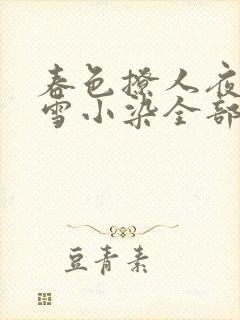 春色撩人夜
雪小染全部
豆青素